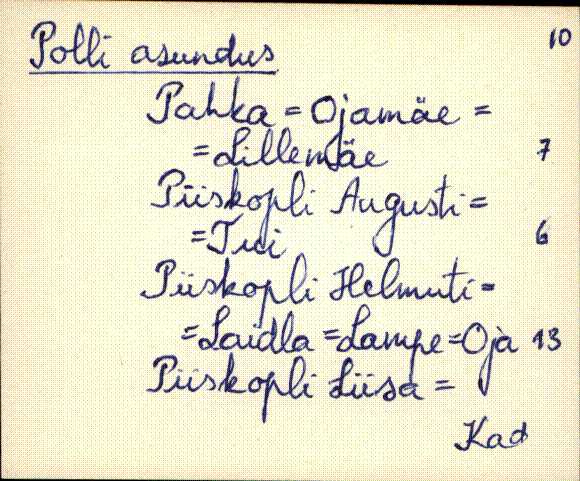 Polli asundus 10
Pahka = Ojamäe =
= Lillemäe 7
Piiskopli Augusti =
= Tui 6
Piiskopli Helmuti =
= Laidla = Lampe = Oja 13
Piiskopli Liisa =
Kad